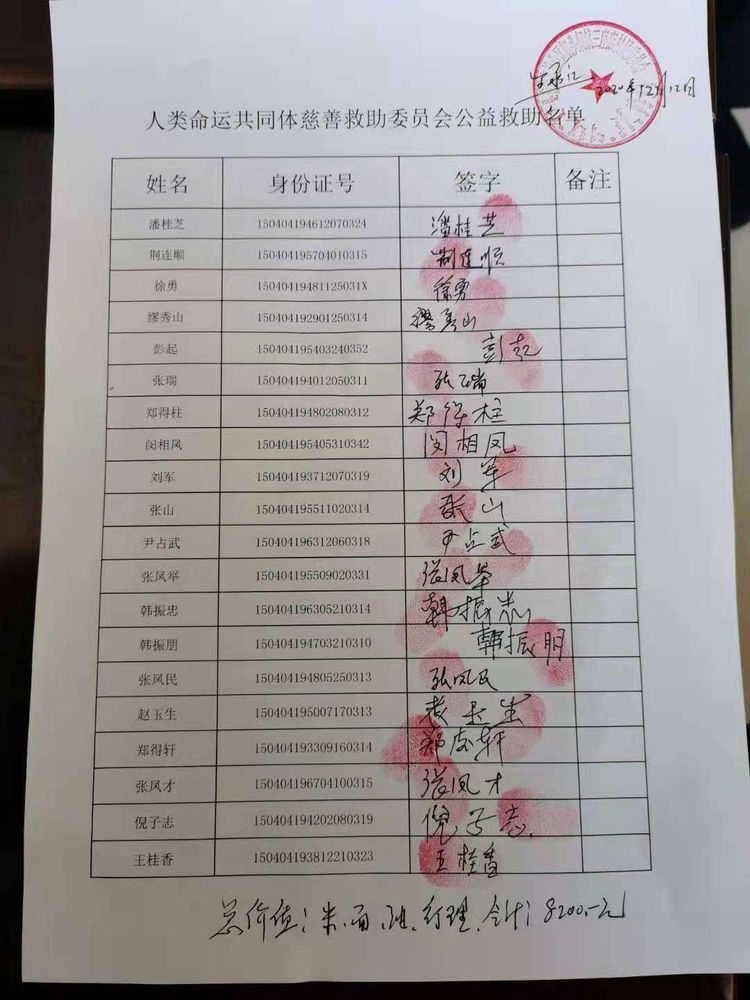 2020年12月12日
人类命运共同体慈善救助委员会公益救助名单
姓名 身份证号 签字 备注
潘桂芝 150404194612070324 潘桂芝
荆连顺 150404195704010315 荆连顺
徐勇 15040419481125031X 徐勇
缪秀山 150404192901250314 缪秀山
彭起 150404195403240352 彭起
张瑞 150404194012050311 张瑞
郑得柱 150404194802080312 郑得柱
闵相凤 150404195405310342 闵相凤
刘军 150404193712070319 刘军
张山 150404195511020314 张山
尹占武 150404196312060318 尹占武
张凤举 150404195509020331 张凤举
韩振忠 150404196305210314 韩振忠
韩振朋 150404194703210310 韩振朋
张凤民 150404194805250313 张凤民
赵玉生 150404195007170313 赵玉生
郑得轩 150404193309160314 郑得轩
张凤才 150404196704100315 张凤才
倪子志 150404194202080319 倪子志
王桂香 150404193812210323 王桂香
总价值：米、面、油、行理、合计：8200.-元